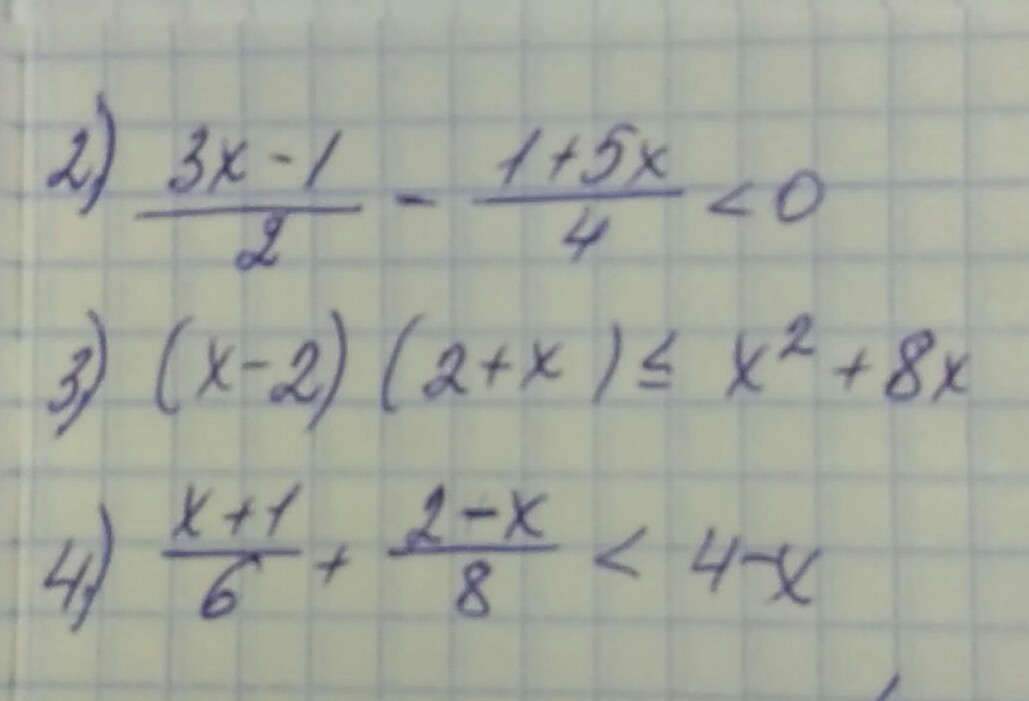 2) (3x-1)/2 - (1+5x)/4 < 0
3) (x-2)(2+x) ≤ x² + 8x
4) (x+1)/6 + (2-x)/8 < 4-x